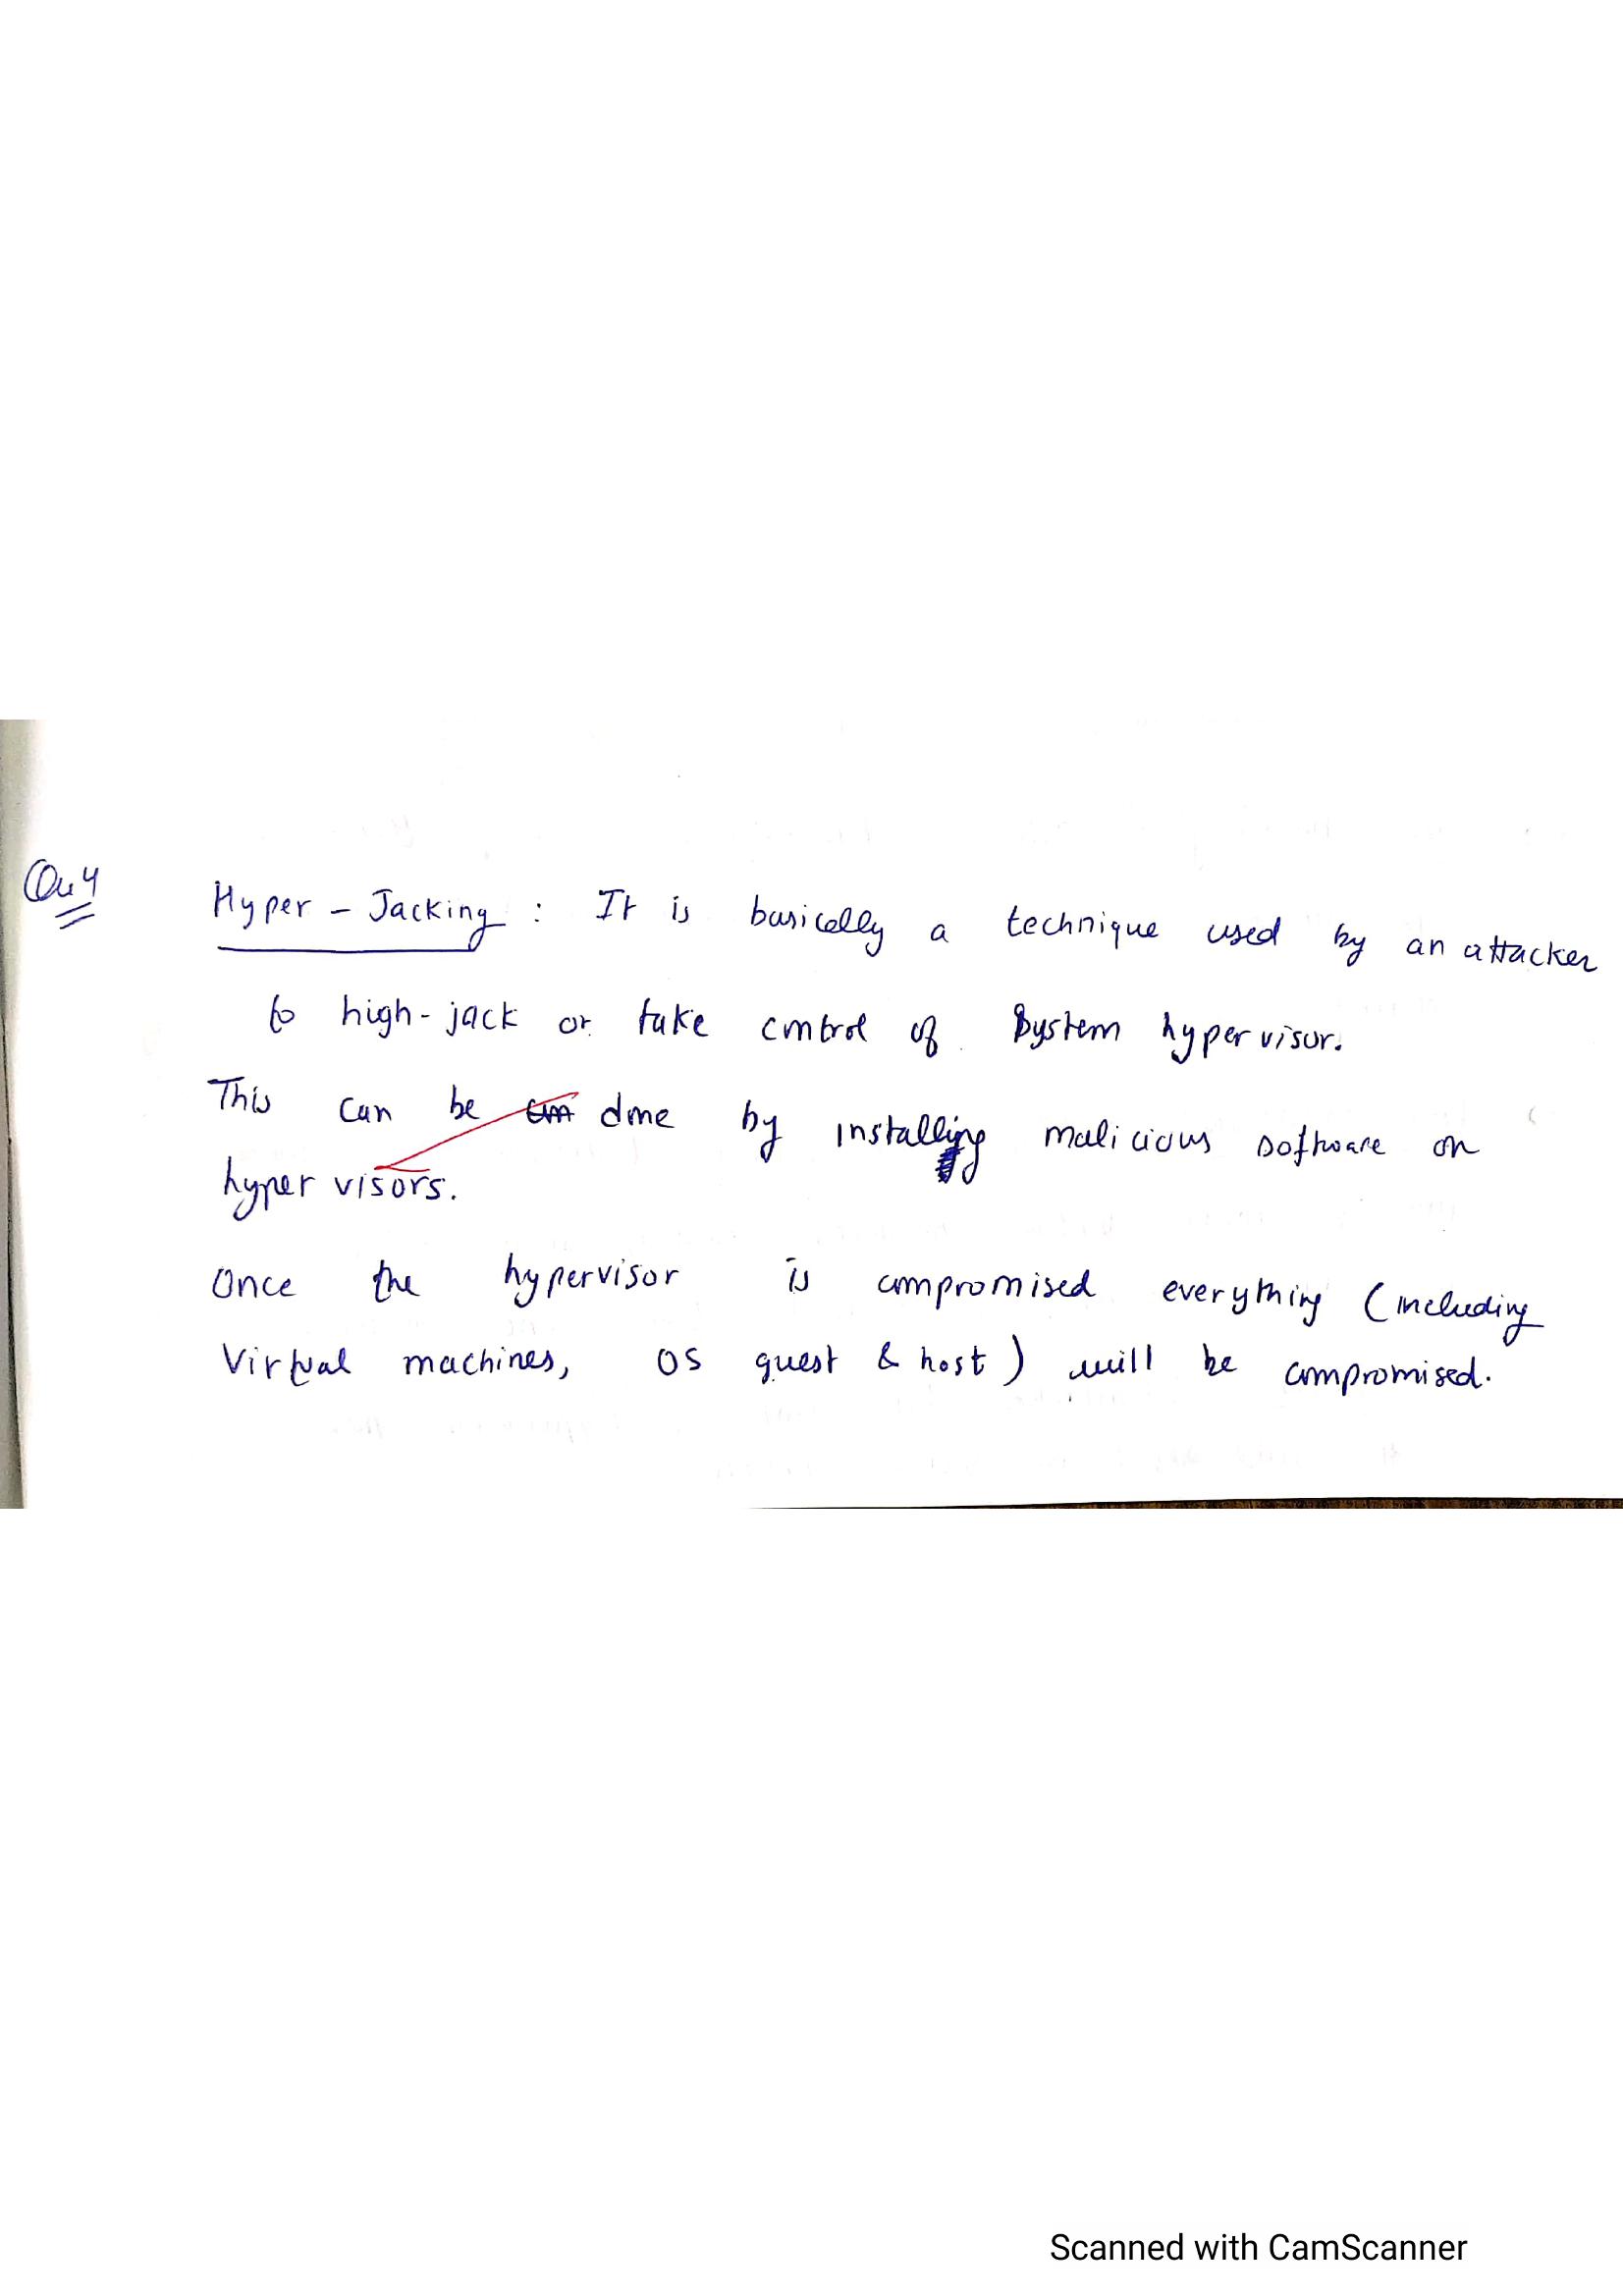 Qu 4
Hyper - Jacking : It is basically a technique used by an attacker
to high-jack or take control of System hypervisor.
This can be done by installing malicious software on
hyper visors.
Once the hypervisor is compromised everything (including
Virtual machines, OS guest & host) will be compromised.
Scanned with CamScanner